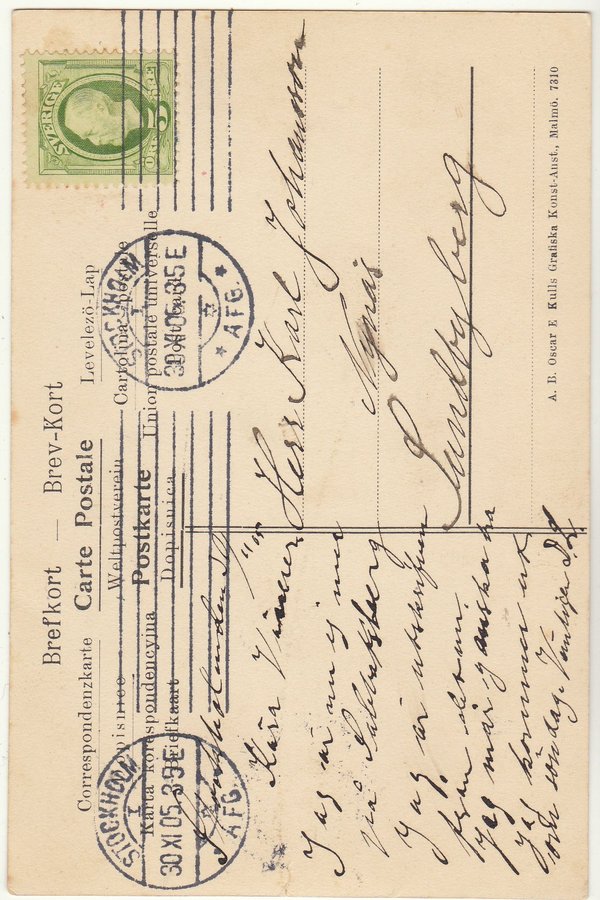 Brefkort — Brev-Kort
Correspondenzkarte Carte Postale Levelező-Lap
Dopisnice Weltpostverein Cartolina postale
Karta korespondencyjna Postkarte Union postale universelle
Briefkaart Dopisnica
SVERIGE
5
STOCKHOLM
1
30 XI 05. 3 5 E
AFG.
STOCKHOLM
1
30 XI 05. 3 5 E
AFG.
Stockholm den 30/11 05
Käre Vänner.
Jag är nu ej mer
på Sabbatsberg
Jag är utskrifven
från dem.
Jag mår ganska bra
Jag kommer ut
om söndag. Vänligen
Herr Karl Johansson
Nynäs
Sundbyberg
A. B. Oscar E Kulls Grafiska Konst-Anst., Malmö. 7310